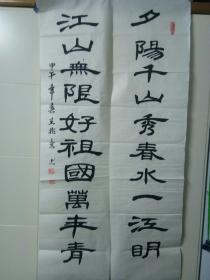 夕陽千山秀春水一江明
江山無限好祖國萬年青
甲午年